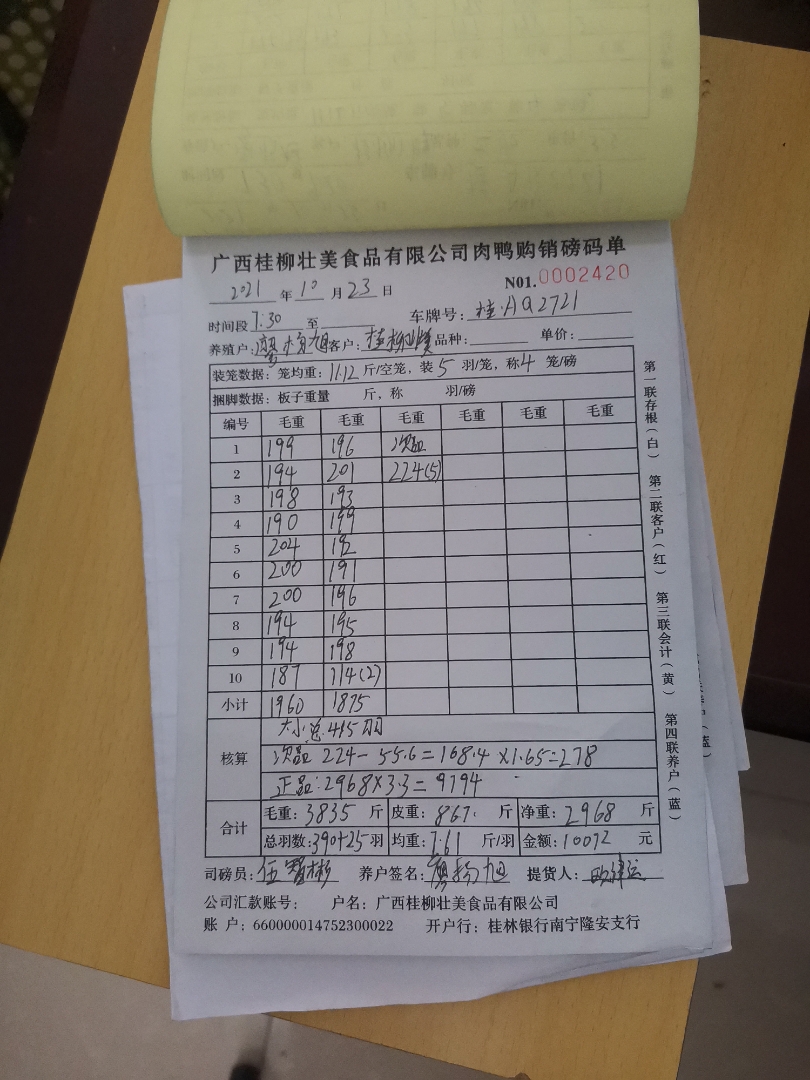 广西桂柳壮美食品有限公司肉鸭购销磅码单
2021 年 10 月 23 日 N01.0002420
时间段 7:30 至 车牌号: 桂·AQ2721
养殖户: 旭 客户: 桂柳 品种: 单价:
装笼数据: 笼均重: 11.12 斤/空笼, 装 5 羽/笼, 称 4 笼/磅
捆脚数据: 板子重量 斤, 称 羽/磅
编号 毛重 毛重 毛重 毛重 毛重 毛重
1 199 196 次品
2 194 201 224(5)
3 198 193
4 190 199
5 204 192
6 200 191
7 200 196
8 194 195
9 194 198
10 187 114(2)
小计 1960 1875
核算 大小总415羽
次品 224-55.6=168.4×1.65=278
正品: 2968×3.3=9794
合计 毛重: 3835 斤 皮重: 867 斤 净重: 2968 斤
总羽数: 390+25 羽 均重: 7.61 斤/羽 金额: 10072 元
司磅员: 伍 彬 养户签名: 旭 提货人:
公司汇款账号: 户名: 广西桂柳壮美食品有限公司
账 户: 660000014752300022 开户行: 桂林银行南宁隆安支行
第一联存根(白) 第二联客户(红) 第三联会计(黄) 第四联养户(蓝)